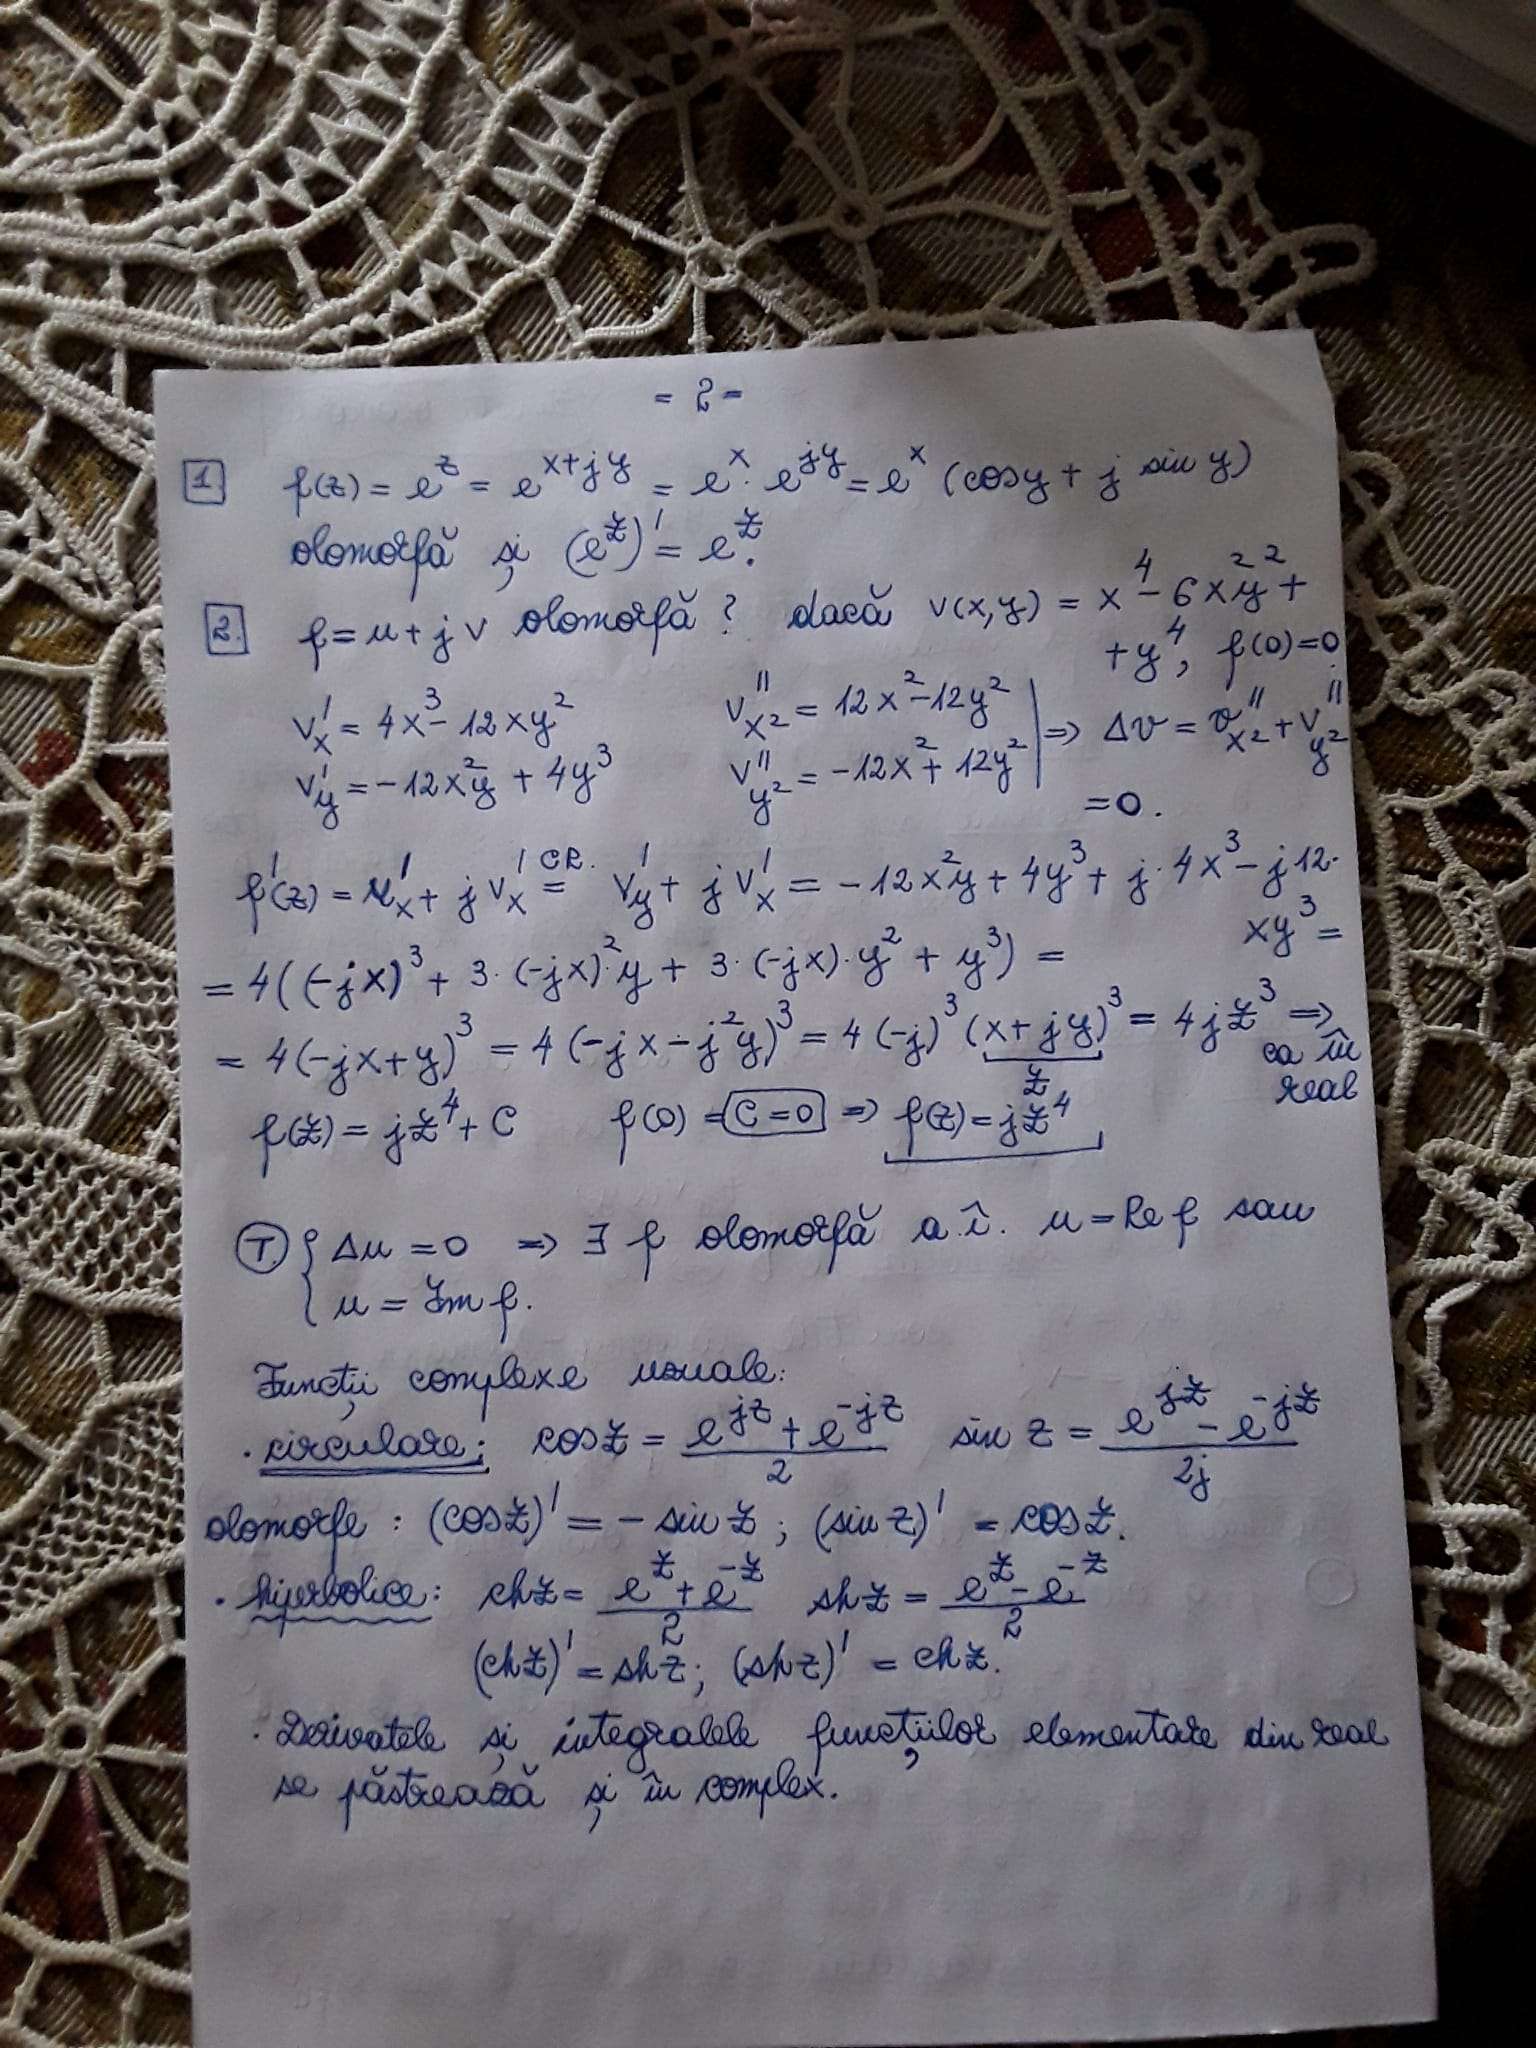 = 2 =
1. f(z) = e^z = e^{x+jy} = e^x · e^{jy} = e^x (cos y + j sin y)
olomorfă și (e^z)' = e^z.
2. f = u + j v olomorfă ? dacă v(x,y) = x^4 - 6x^2y^2 +
+ y^4, f(0) = 0.
v'_x = 4x^3 - 12xy^2 v''_{x^2} = 12x^2 - 12y^2 | ⇒ Δv = v''_{x^2} + v''_{y^2}
v'_y = -12x^2y + 4y^3 v''_{y^2} = -12x^2 + 12y^2
= 0.
f'(z) = u'_x + j v'_x =^{CR.} v'_y + j v'_x = -12x^2y + 4y^3 + j · 4x^3 - j 12·
xy^3 =
= 4((-jx)^3 + 3·(-jx)^2·y + 3·(-jx)·y^2 + y^3) =
= 4(-jx+y)^3 = 4(-jx - j^2y)^3 = 4(-j)^3 (x+jy)^3 = 4jz^3 ⇒
z
ca în
real
f(z) = jz^4 + C f(0) = C = 0 ⇒ f(z) = jz^4
T. { Δu = 0 ⇒ ∃ f olomorfă a.î. u = Re f sau
u = Im f.
Funcții complexe uzuale:
· circulare: cos z = (e^{jz} + e^{-jz})/2 sin z = (e^{jz} - e^{-jz})/2j
olomorfe : (cos z)' = - sin z ; (sin z)' = cos z.
· hiperbolice: ch z = (e^z + e^{-z})/2 sh z = (e^z - e^{-z})/2
(ch z)' = sh z; (sh z)' = ch z.
· Derivatele și integralele funcțiilor elementare din real
se păstrează și în complex.